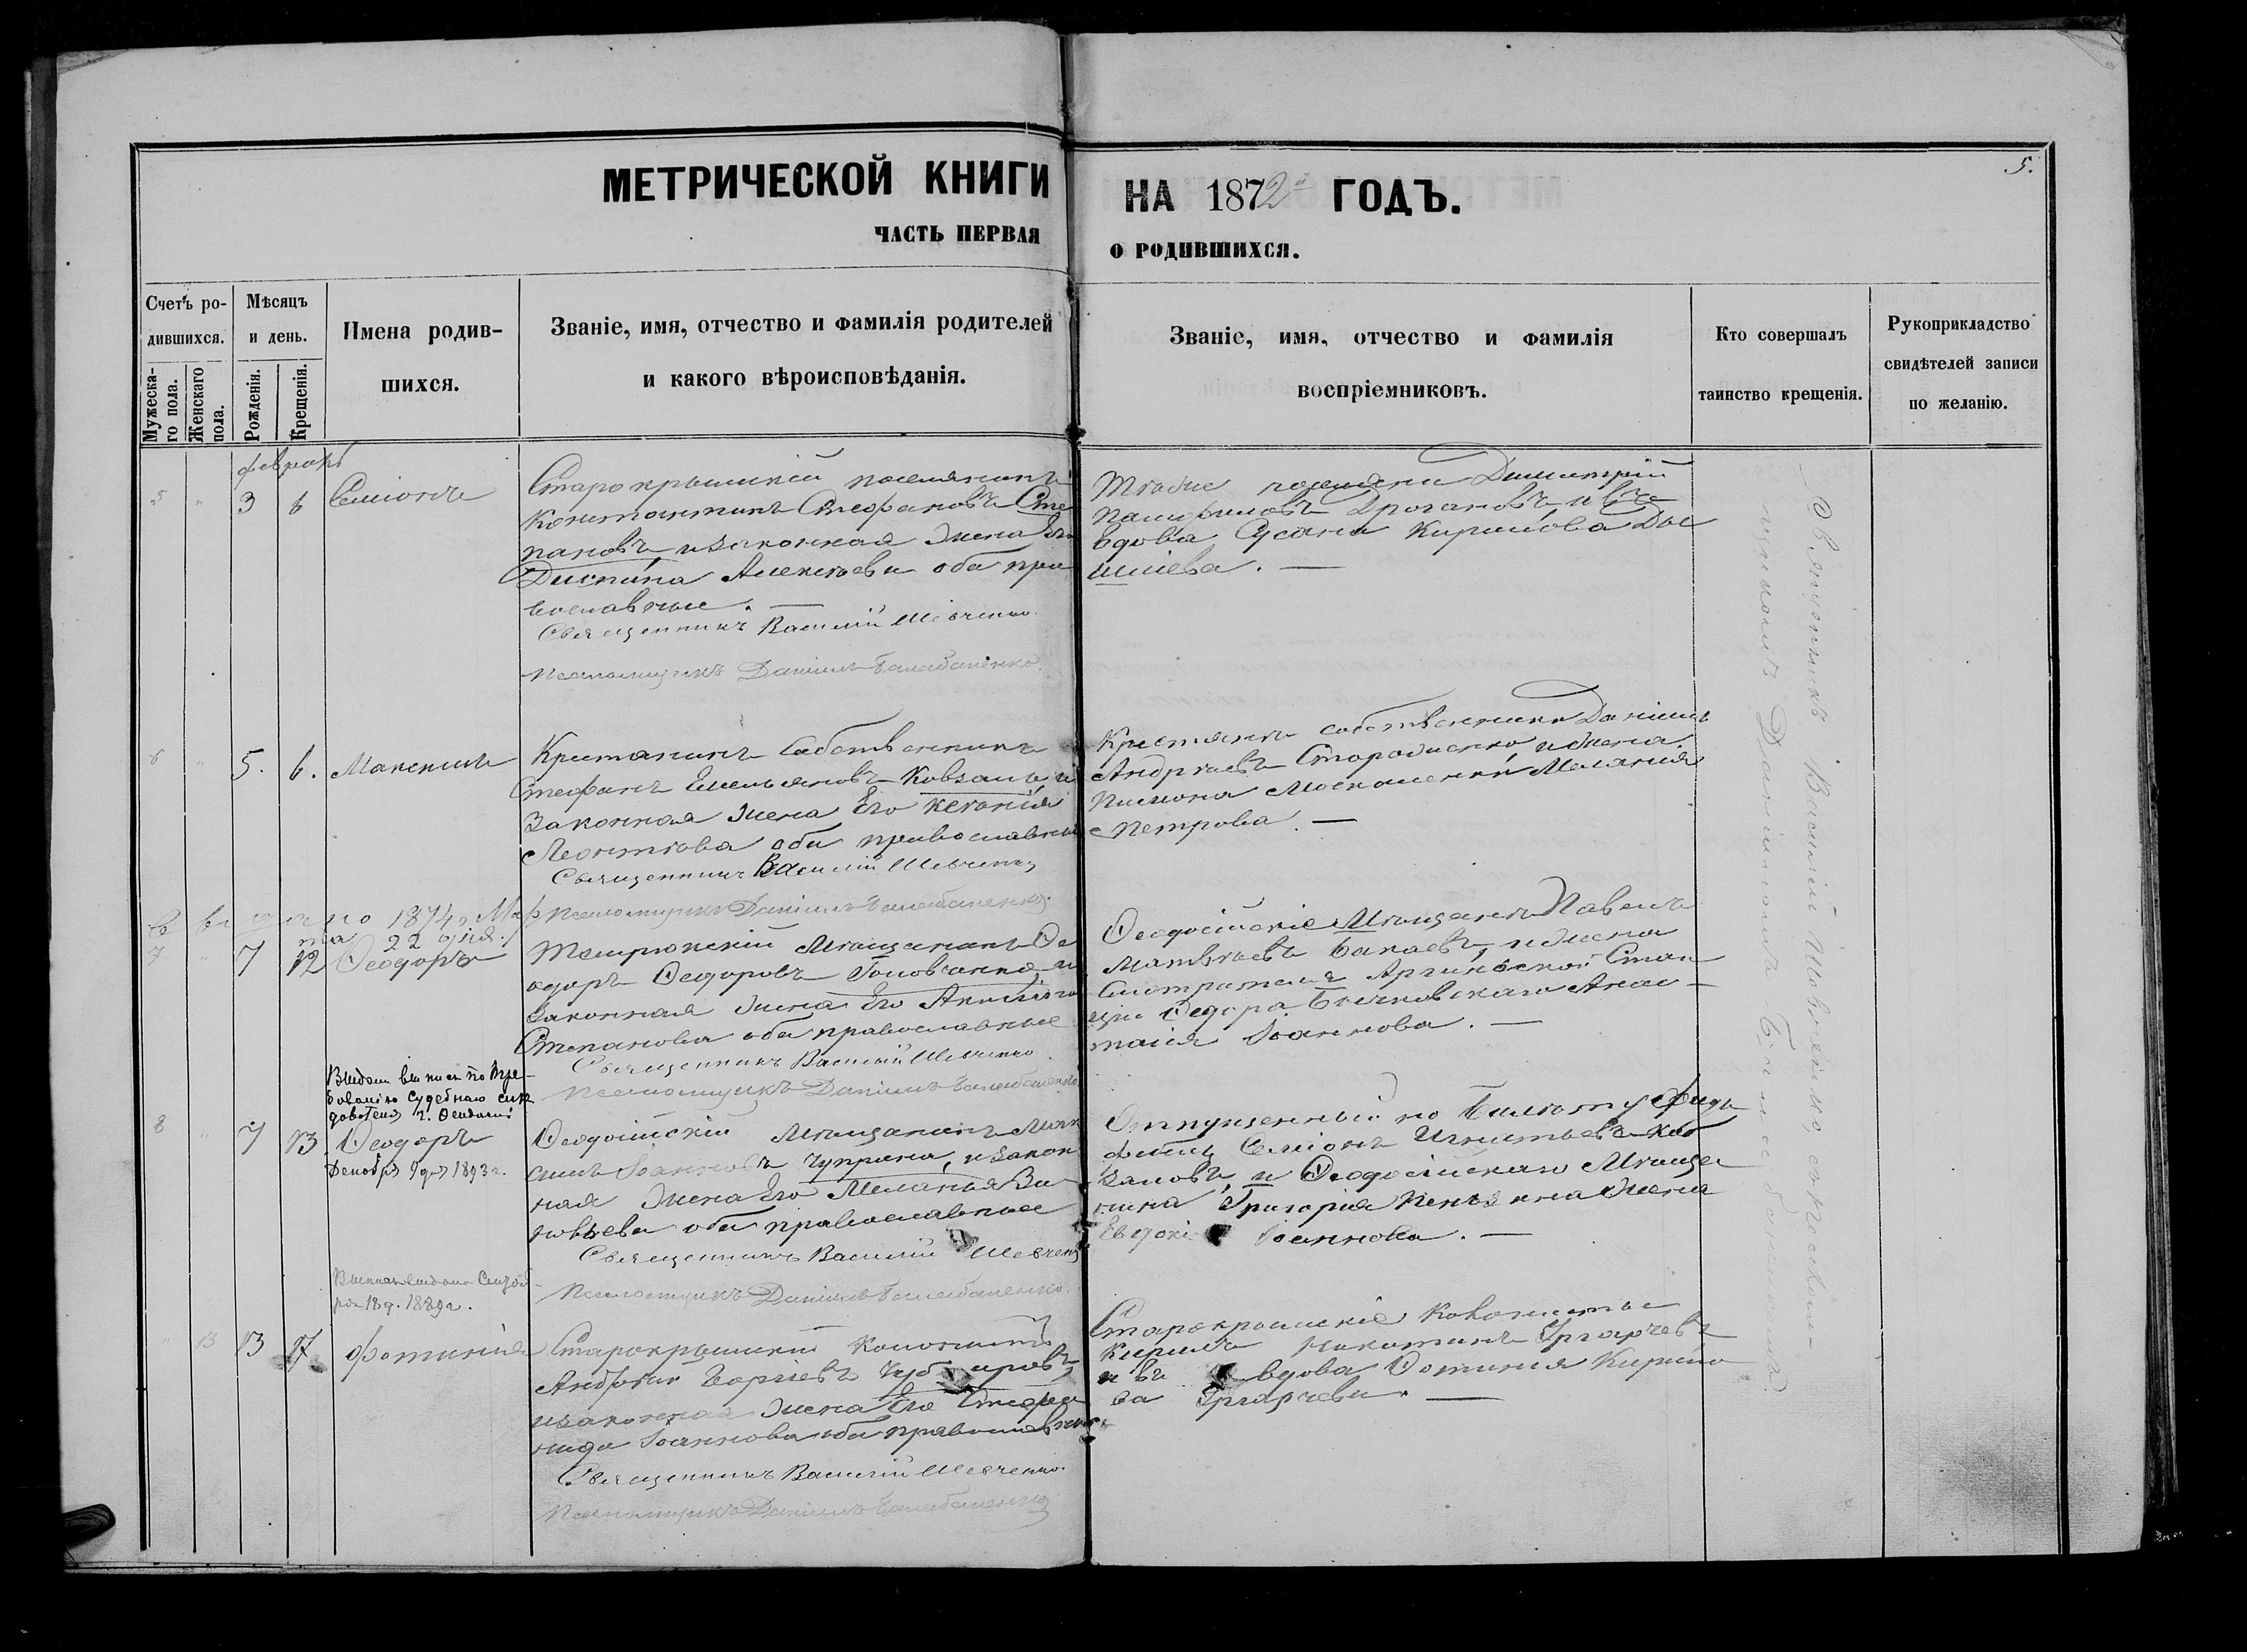 МЕТРИЧЕСКОЙ КНИГИ
ЧАСТЬ ПЕРВАЯ
НА 1872й ГОДЪ.
О РОДИВШИХСЯ.
5.
Счетъ ро-
дившихся.
Мужеска-
го пола.
Женскаго
пола.
Мѣсяцъ
и день.
Рожденія.
Крещенія.
Имена родив-
шихся.
Званіе, имя, отчество и фамилія родителей
и какого вѣроисповѣданія.
Званіе, имя, отчество и фамилія
воспріемниковъ.
Кто совершалъ
таинство крещенія.
Рукоприкладство
свидѣтелей записи
по желанію.
февраль
5 " 3 6 Симіонъ
Старокрымскій поселянинъ
Константинъ Стефановъ Сте
пановъ и законная жена Его
Диспина Алексѣева оба пра
вославные. —
Священникъ Василій Шевченко
Псаломщикъ Даніилъ Балабаненко.
поселяне Димитрій
Памфиловъ Драгановъ и
вдова Сусана Кирилова
6 " 5. 6. Максимъ
Крестьянинъ Собственникъ
Стефанъ Емельяновъ Ковзалъ и
Законная жена Его Ксенія
Леонтіева оба православные
Священникъ Василій Шевченко
Псаломщикъ Даніилъ Балабаненко.
Крестьянинъ собственникъ Даніилъ
Андреевъ Стародненко и жена
Пимона Москаленки Меланія
Петрова. —
1874 Мар
та 22 дня.
7 " 7 12 Феодоръ
Темрюкскій Мѣщанинъ Фе
одоръ Федоровъ Головченко и
законная жена Его
Степанова оба православные
Священникъ Василій Шевченко
Псаломщикъ Даніилъ Балабаненко
Феодосійскіе Мѣщанинъ Павелъ
Матвѣевъ Бакаевъ, и жена
Смотрителя Аргинской Стан
ціи Федора Бычковскаго Анас
тасія Іоаннова. —
Выданъ выпись по тре-
бованію Судебнаго слѣ
дователя г. Феодосіи
8 " 7 13. Феодоръ
Декабря 9 дня 1893 г.
Феодосійскій Мѣщанинъ Мак
симъ Іоанновъ Чуприна, и закон
ная жена Его Меланья Зи
новьева оба православные
Священникъ Василій Шевченко
Псаломщикъ Даніилъ Балабаненко.
Отпущенный по билету
Симіонъ Игнатьевъ
и Феодосійскаго Мѣща
нина Григорія жена
Евдокія Іоаннова. —
18 д. 1889 г.
" 13 13 17 Фотинія
Старокрымскій Колонистъ
Андрей Георгіевъ
и законная жена Его Стефа
нида Іоаннова оба православные
Священникъ Василій Шевченко.
Псаломщикъ Даніилъ Балабаненко
Старокрымскіе Колонисты
Кирилъ Никитинъ Гргарчевъ
вдова Фотинія Кирило
ва Гргарчева. —
Священникъ Василій Шевченко, съ Псалом-
щикомъ Данііломъ Балабаненкомъ.